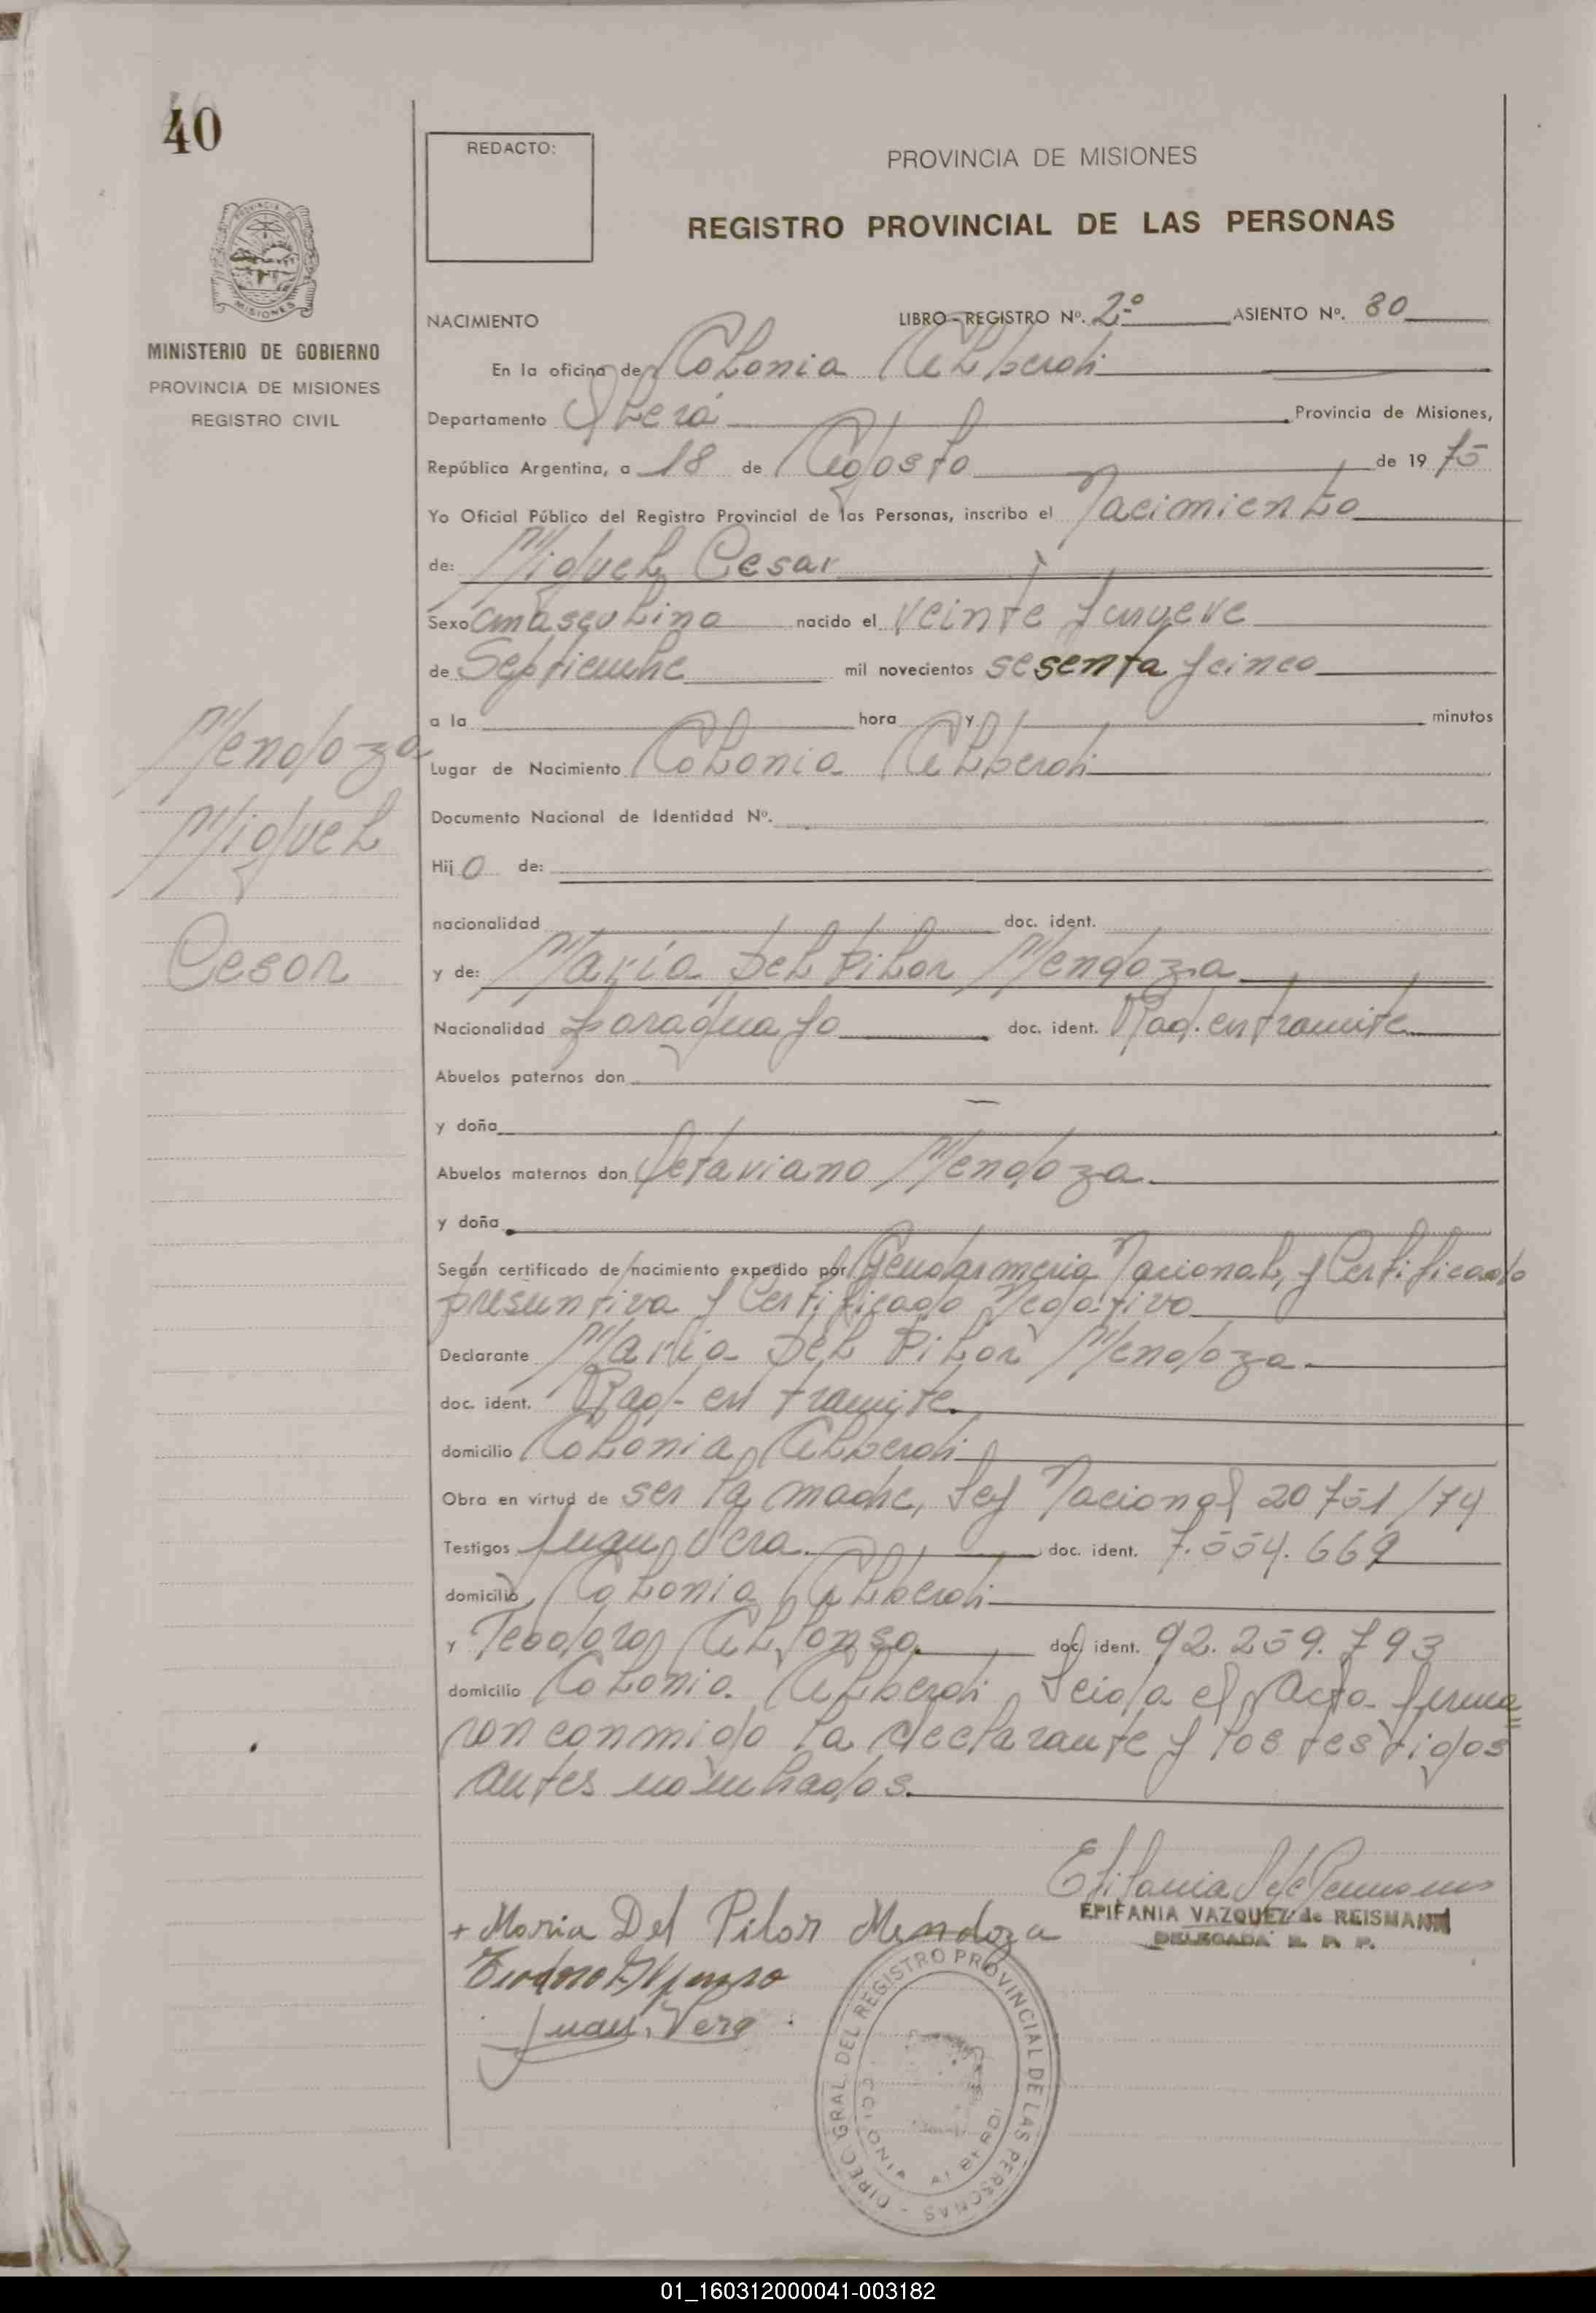 40
REDACTO:
PROVINCIA DE MISIONES
REGISTRO PROVINCIAL DE LAS PERSONAS
PROVINCIA DE
MISIONES
MINISTERIO DE GOBIERNO
PROVINCIA DE MISIONES
REGISTRO CIVIL
Mendoza
Miguel
Cesar
NACIMIENTO LIBRO-REGISTRO Nº. 2º ASIENTO Nº. 80
En la oficina de Colonia Alberdi
Departamento Oberá Provincia de Misiones,
República Argentina, a 18 de Agosto de 1975
Yo Oficial Público del Registro Provincial de las Personas, inscribo el Nacimiento
de: Miguel Cesar
Sexo masculino nacido el veinte y nueve
de Septiembre mil novecientos sesenta y cinco
a la hora y minutos
Lugar de Nacimiento Colonia Alberdi
Documento Nacional de Identidad Nº.
Hijo de:
nacionalidad doc. ident.
y de: Maria Del Pilar Mendoza
Nacionalidad paraguaya doc. ident. Rad. en tramite
Abuelos paternos don
y doña
Abuelos maternos don Octaviano Mendoza
y doña
Según certificado de nacimiento expedido por Gendarmeria Nacional, y Certificado
presuntiva y Certificado Negativo
Declarante Maria Del Pilar Mendoza
doc. ident. Rad. en tramite
domicilio Colonia Alberdi
Obra en virtud de ser la madre, Ley Nacional 20751/74
Testigos Juan Vera doc. ident. 7.554.669
domicilio Colonia Alberdi
y Teodoro Alfonso doc. ident. 92.259.793
domicilio Colonia Alberdi Leida el Acta firma
ron conmigo la declarante y los testigos
antes nombrados.
EPIFANIA VAZQUEZ de REISMANN
DELEGADA R. P. P.
+ Maria Del Pilar Mendoza
Teodoro Alfonso
Juan Vera
DIREC. GRAL. DEL REGISTRO PROVINCIAL DE LAS PERSONAS
COLONIA ALBERDI
01_160312000041-003182